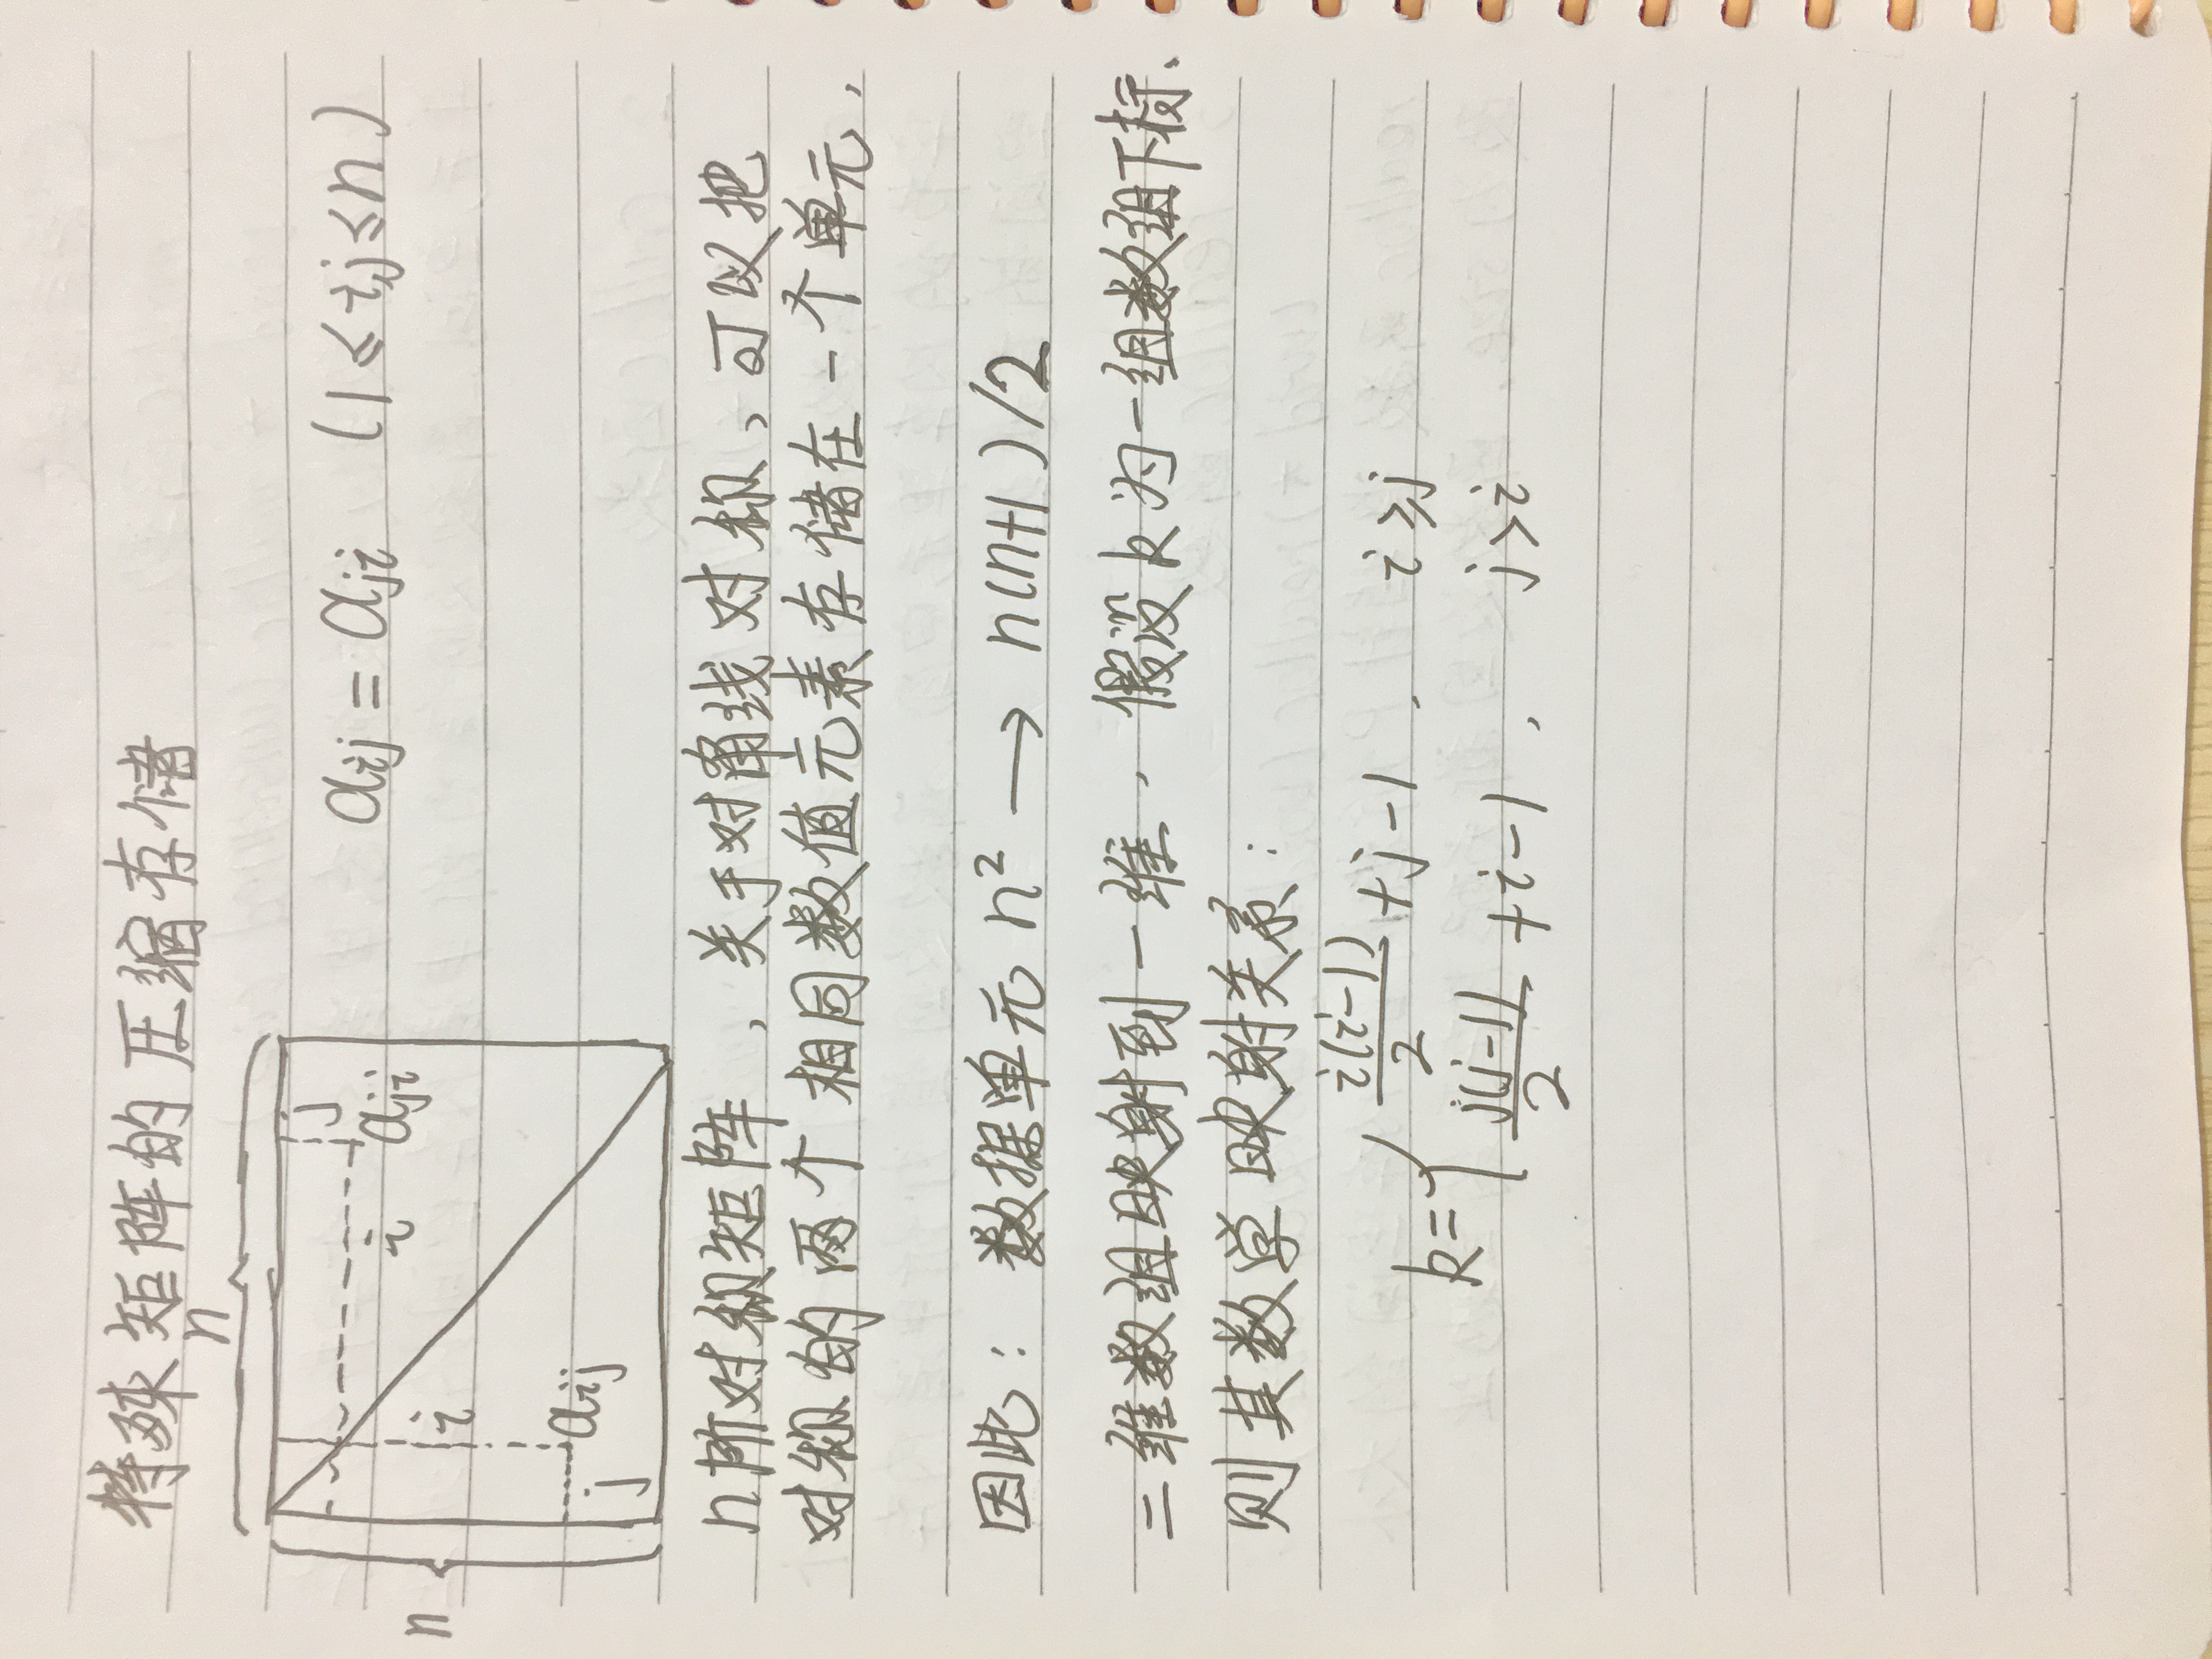 特殊矩阵的压缩存储
n
n
j
i
aji
i
aij
j
aij = aji (1≤i,j≤n)
n阶对称矩阵，关于对角线对称，可以把
对称的两个相同数值元素存储在一个单元，
因此：数据单元 n² → n(n+1)/2
二维数组映射到一维，假设k为一组数组下标、
则其数学映射关系：
k={ i(i-1)/2 +j-1， i≥j
j(j-1)/2 +i-1， j>i